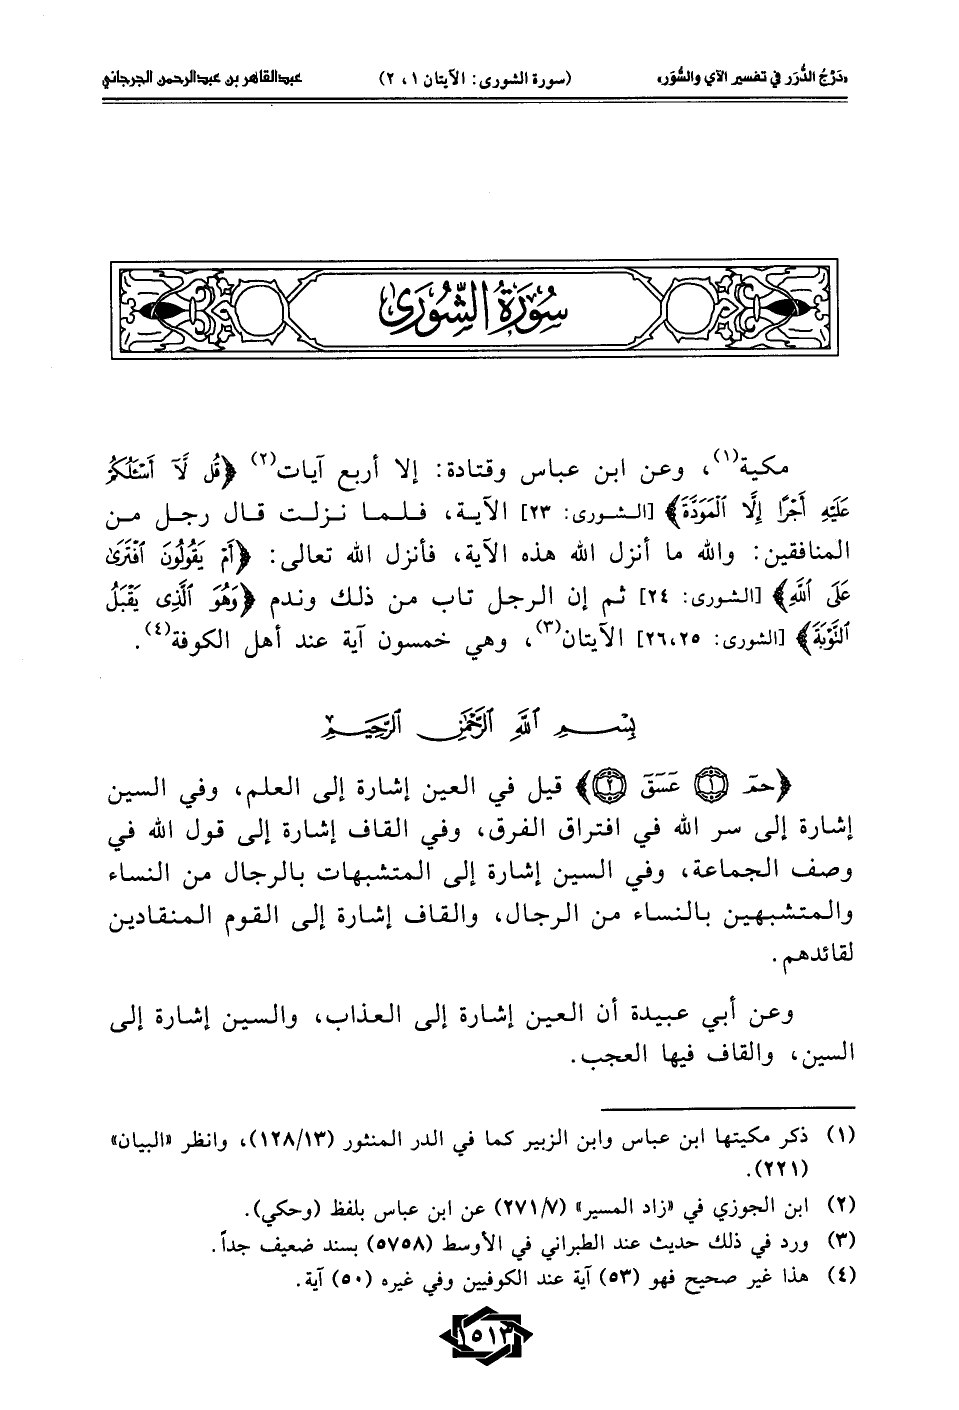 «دَرْجُ الدُّرَر في تفسير الآي والسُّوَر» (سورة الشورى: الآيتان ١، ٢) عبدالقاهر بن عبدالرحمن الجرجاني
سُورَةُ الشُّورَى
مكية(١)، وعن ابن عباس وقتادة: إلا أربع آيات(٢) ﴿قُل لَّآ أَسْـَٔلُكُمْ
عَلَيْهِ أَجْرًا إِلَّا ٱلْمَوَدَّةَ﴾ [الشورى: ٢٣] الآية، فلما نزلت قال رجل من
المنافقين: والله ما أنزل الله هذه الآية، فأنزل الله تعالى: ﴿أَمْ يَقُولُونَ ٱفْتَرَىٰ
عَلَى ٱللَّهِ﴾ [الشورى: ٢٤] ثم إن الرجل تاب من ذلك وندم ﴿وَهُوَ ٱلَّذِى يَقْبَلُ
ٱلتَّوْبَةَ﴾ [الشورى: ٢٦،٢٥] الآيتان(٣)، وهي خمسون آية عند أهل الكوفة(٤).
بِسْمِ ٱللَّهِ ٱلرَّحْمَٰنِ ٱلرَّحِيمِ
﴿حمٓ ١ عٓسٓقٓ ٢﴾ قيل في العين إشارة إلى العلم، وفي السين
إشارة إلى سر الله في افتراق الفرق، وفي القاف إشارة إلى قول الله في
وصف الجماعة، وفي السين إشارة إلى المتشبهات بالرجال من النساء
والمتشبهين بالنساء من الرجال، والقاف إشارة إلى القوم المنقادين
لقائدهم.
وعن أبي عبيدة أن العين إشارة إلى العذاب، والسين إشارة إلى
السين، والقاف فيها العجب.
(١) ذكر مكيتها ابن عباس وابن الزبير كما في الدر المنثور (١٢٨/١٣)، وانظر «البيان»
(٢٢١).
(٢) ابن الجوزي في «زاد المسير» (٢٧١/٧) عن ابن عباس بلفظ (وحكي).
(٣) ورد في ذلك حديث عند الطبراني في الأوسط (٥٧٥٨) بسند ضعيف جداً.
(٤) هذا غير صحيح فهو (٥٣) آية عند الكوفيين وفي غيره (٥٠) آية.
١٥١٣